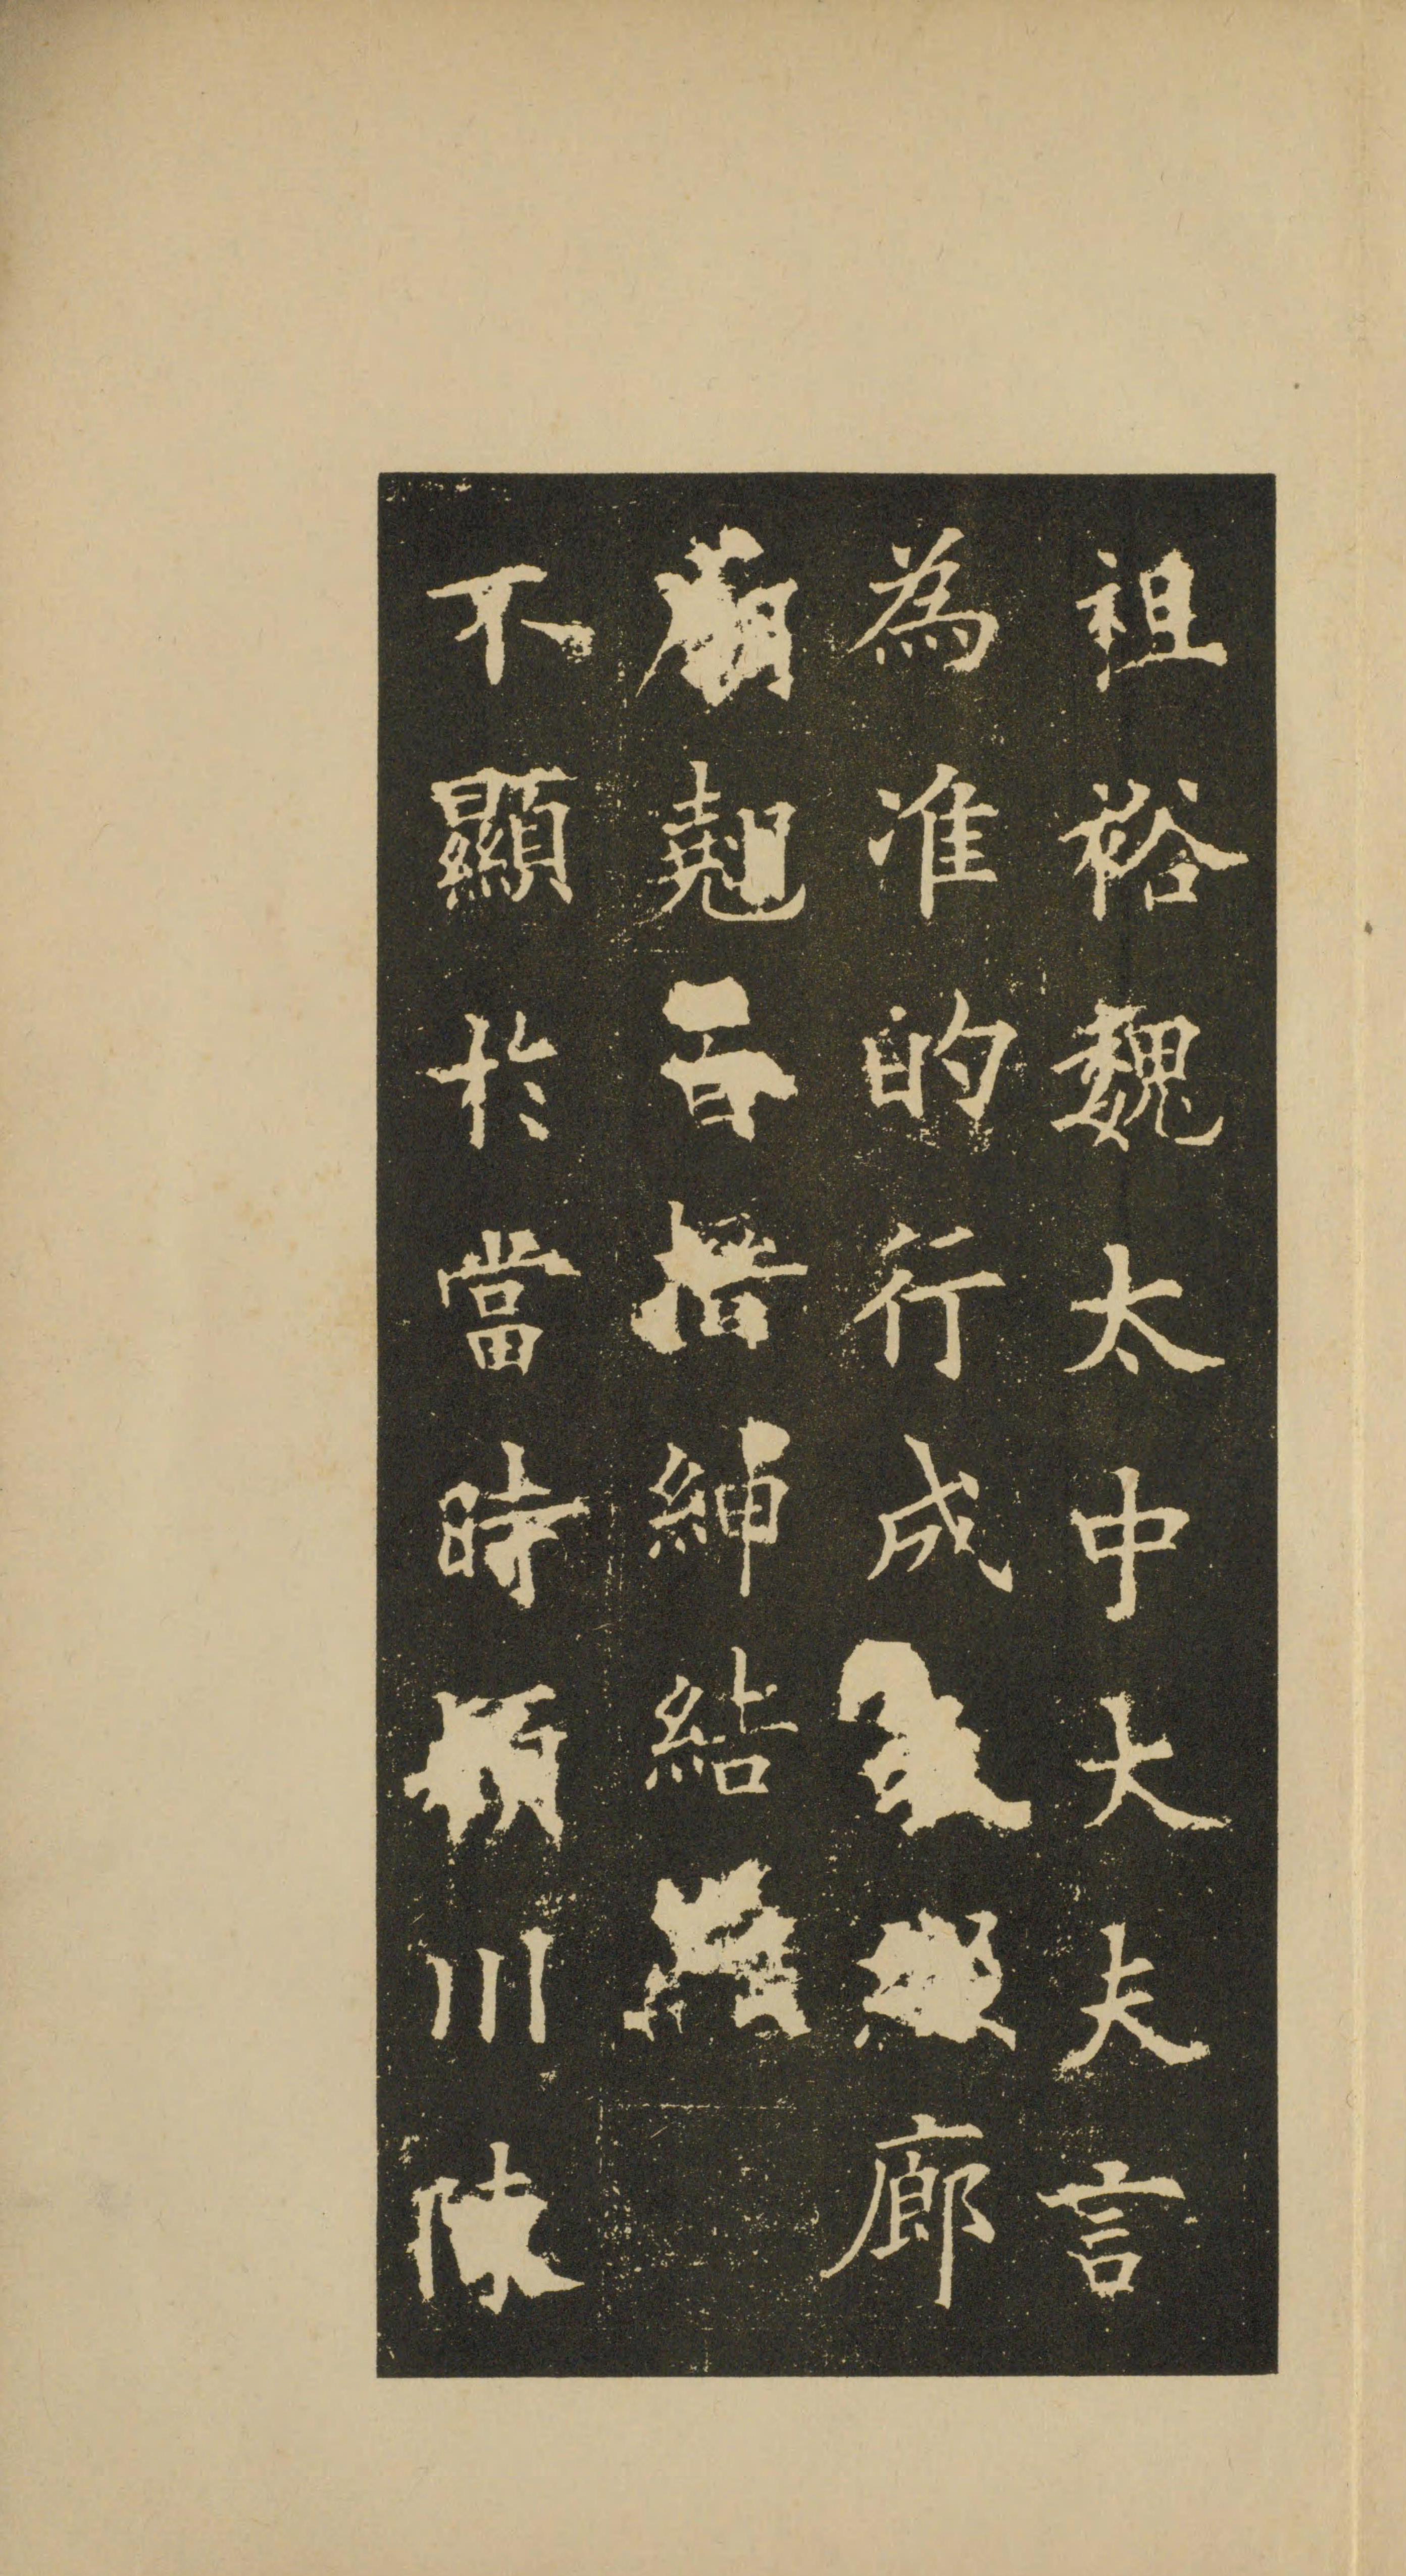 祖裕魏太中大夫言
為准的行成廊
廟翹首搢紳結
不顯於當時潁川陳